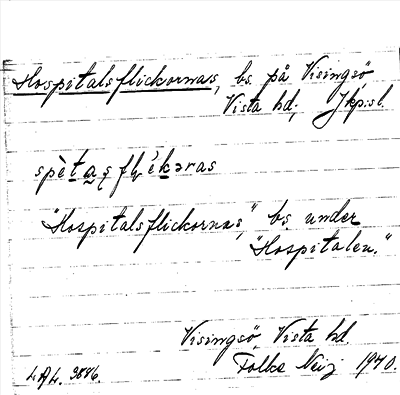 Hospitalsflickornas, bs. på Visingsö,
Vista hd, Jkp:sl.
"Hospitalsflickornas," bs. under
"Hospitalen."
Visingsö, Vista hd.
L.A.L. 3886. Folke Neij 1940.